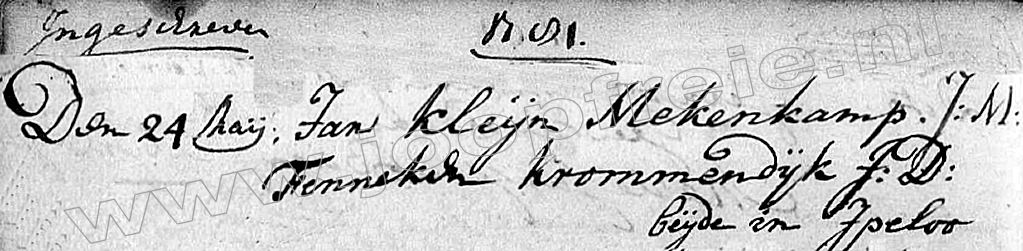 Ingeschreven
Den 24 Maij. Jan Kleijn Mekenkamp. J: M:
Fenneken Krommendijk J: D:
beijde in Ypeloo
www.joopfreie.nl